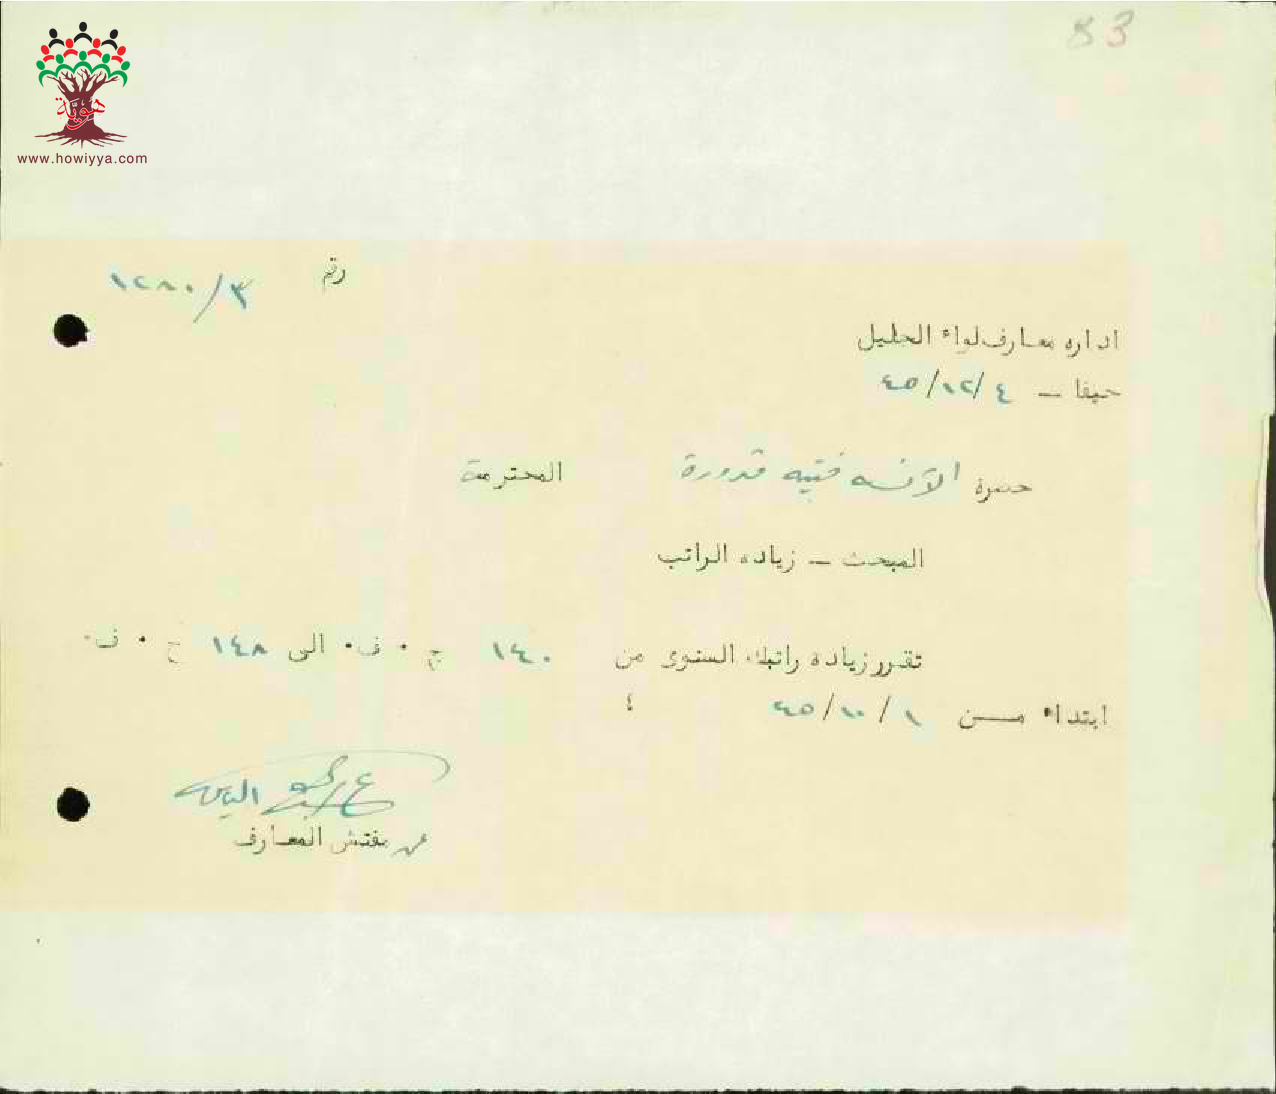 83
هوية
www.howiyya.com
رقم ١٢٨٠/٣
اداره معارف لواء الجليل
حيفا – ٤٥/١٢/٤
حضرة الآنسه فتنيه قدورة المحترمة
المبحث – زياده الراتب
تقرر زياده راتبك السنوى من ١٤٠ ج ٠ ف ٠ الى ١٤٨ ج ٠ ف ٠
ابتداء من ٤٥/١٠/١ ؛
الياس
عن مفتش المعارف